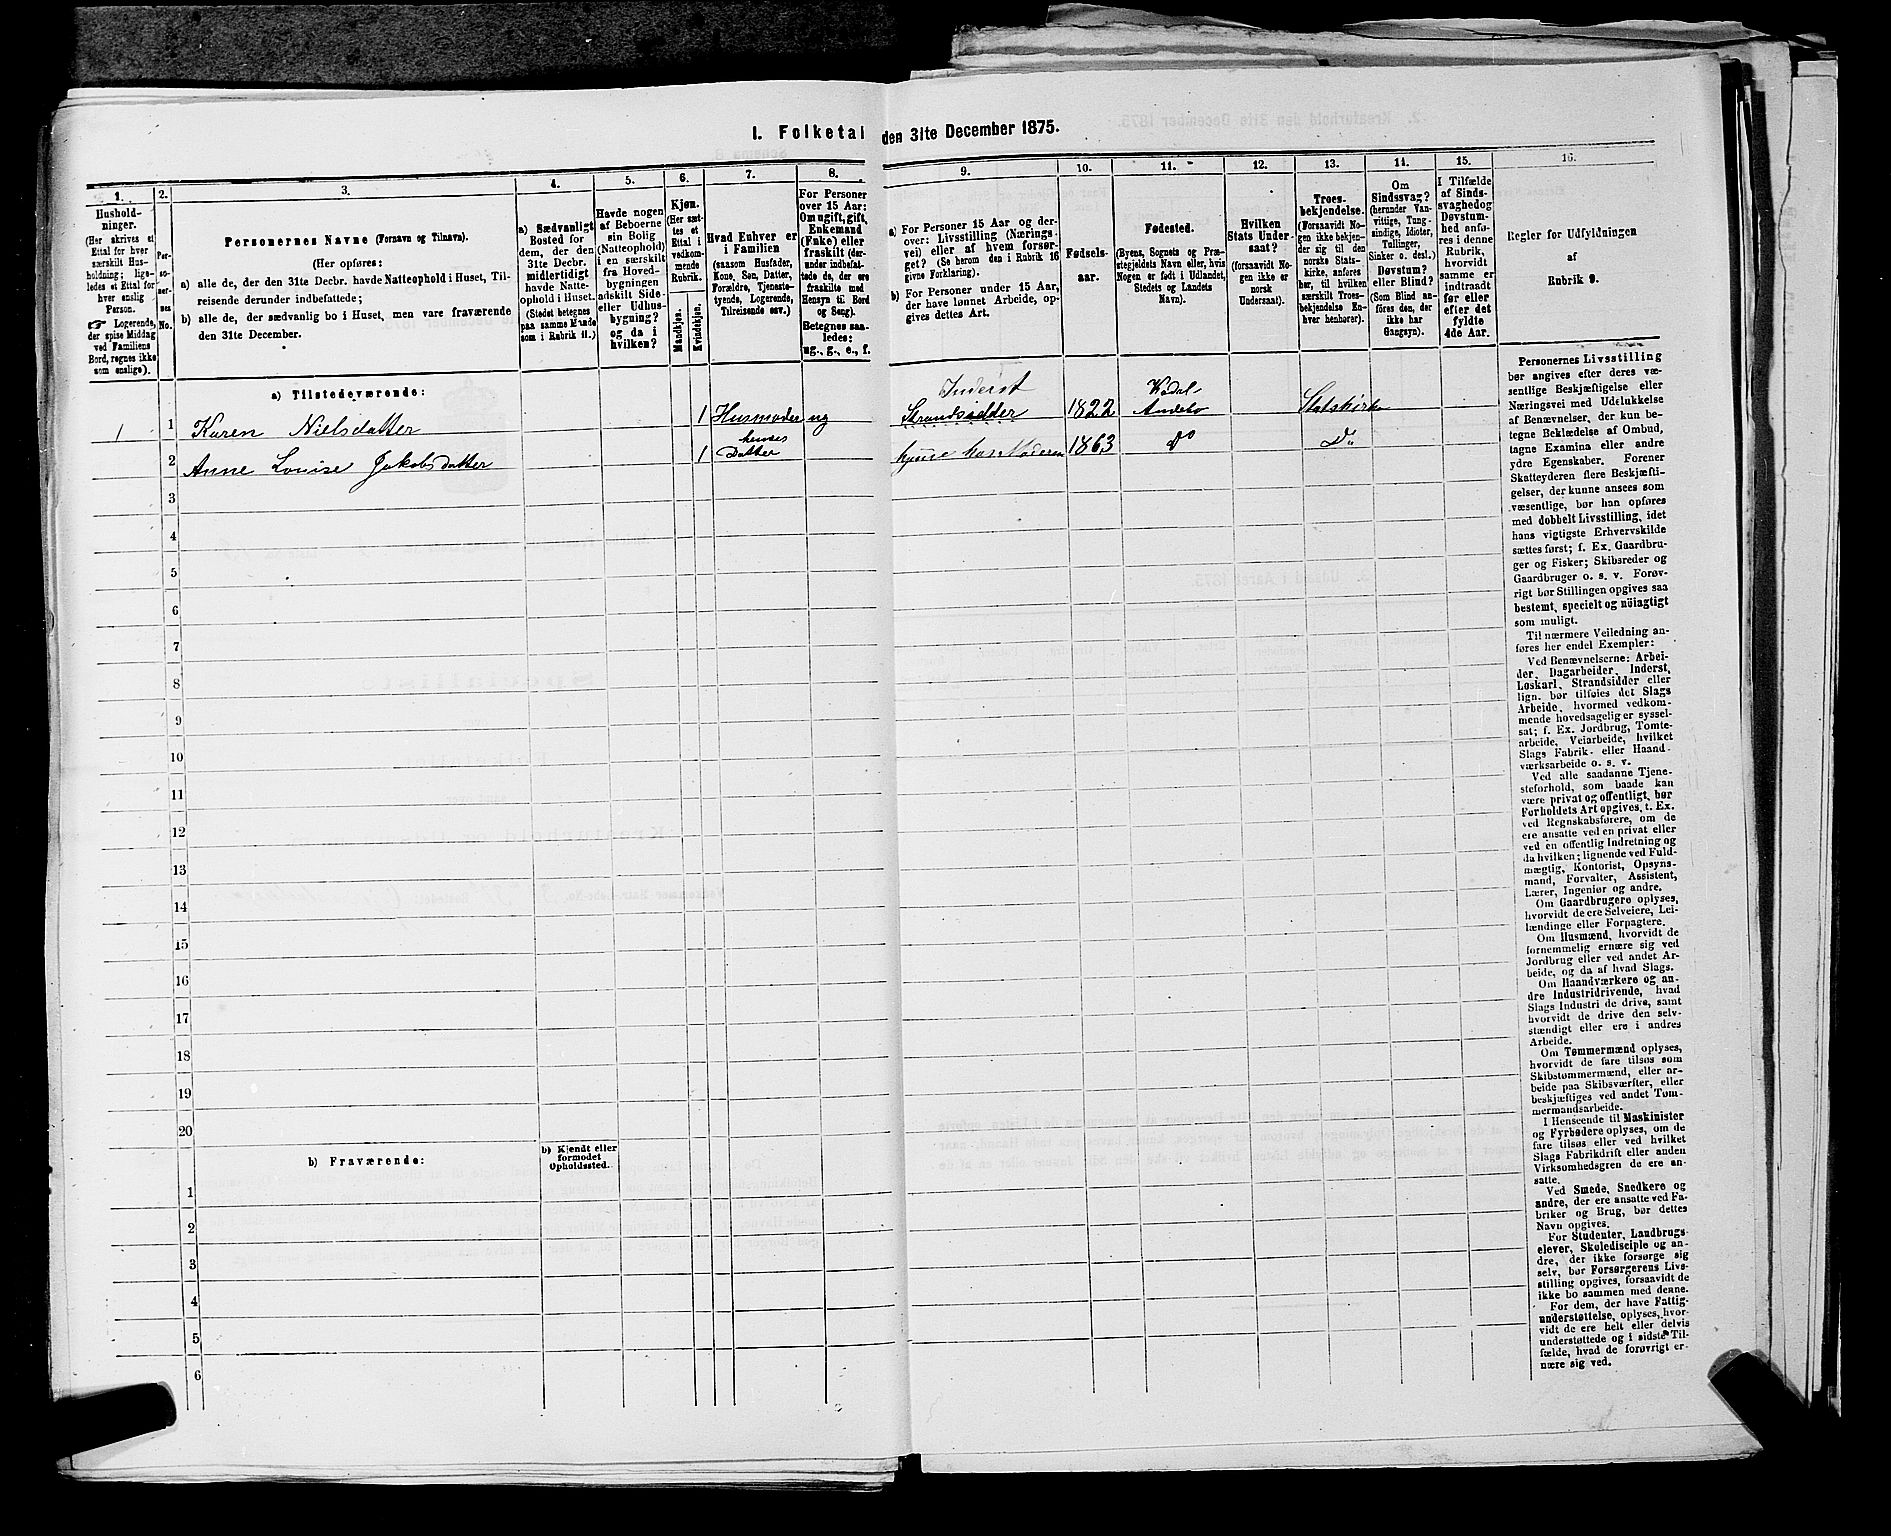 I. Folketal den 31te December 1875.
1.
2.
3.
4.
5.
6.
7.
8.
9.
10.
11.
12.
13.
14.
15.
16.
Hushold-
ninger.
(Her skrives et
Ettal for hver
særskilt Hus-
holdning; lige-
ledes et Ettal for
hver enslig
Person.
☞ Logerende,
der spise Middag
ved Familiens
Bord, regnes ikke
som enslige).
Per-
so-
ner-
nes
No.
Personernes Navne (Fornavn og Tilnavn).
(Her opføres:
a) alle de, der den 31te Decbr. havde Natteophold i Huset, Til-
reisende derunder indbefattede;
b) alle de, der sædvanlig bo i Huset, men vare fraværende
den 31te December.
a) Sædvanligt
Bosted for
dem, der den
31te Decbr.
midlertidigt
havde Natte-
ophold i Huset.
(Stedet betegnes
paa samme Maade
som i Rubrik 11.)
Havde nogen
af Beboerne
sin Bolig
(Natteophold)
i en særskilt
fra Hoved-
bygningen
adskilt Side-
eller Udhus-
bygning?
og da i
hvilken?
Kjøn.
(Her sæt-
tes et
Ettal i
vedkom-
mende
Rubrik.
Mandkjøn.
Kvindekjøn.
Hvad Enhver er
i Familien
(saasom Husfader,
Kone, Søn, Datter,
Forældre, Tjeneste-
tyende, Logerende,
Tilreisende osv.)
For Personer
over 15 Aar:
Om ugift, gift,
Enkemand
(Enke) eller
fraskilt (der-
under indbefat-
tede de, der ere
fraskilte med
Hensyn til Bord
og Seng).
Betegnes saa-
ledes:
ug., g., e., f.
a) For Personer 15 Aar og der-
over: Livsstilling (Nærings-
vei) eller af hvem forsør-
get? (Se herom den i Rubrik 16
givne Forklaring).
b) For Personer under 15 Aar,
der have lønnet Arbeide, op-
gives dettes Art.
Fødsels-
aar.
Fødested.
(Byens, Sognets og Præ-
stegjeldets Navn eller, hvis
Nogen er født i Udlandet,
Stedets og Landets
Navn).
Hvilken
Stats Under-
saat?
(forsaavidt No-
gen ikke er
norsk
Undersaat).
Troes-
bekjendelse.
(Forsaavidt No-
gen ikke bekjen-
der sig til den
norske Stats-
kirke, anføres
her, til hvilken
særskilt Troes-
bekjendelse En-
hver henhører).
Om
Sindssvag?
(herunder Van-
vittige, Tung-
sindige, Idioter,
Tullinger,
Sinker o. desl.)
Døvstum?
eller Blind?
(Som Blind an-
føres den, der
ikke har
Gangsyn).
I Tilfælde
af Sinds-
svaghed og
Døvstum-
hed anfø-
res i denne
Rubrik,
hvorvidt
samme er
indtraadt
før eller
efter det
fyldte
4de Aar.
Regler for Udfyldningen
af
Rubrik 9.
a) Tilstedeværende:
1 1 Karen Nielsdatter 1 Husmoder ug Inderst Strandsidder 1822 Kodal- Andebo Statskirke
2 Anne Louise Jakobsdatter 1 hendes Datter hjemme hos Moderen 1863 Do Do
3
4
5
6
7
8
9
10
11
12
13
14
15
16
17
18
19
20
b) Fraværende:
b) Kjendt eller
formodet
Opholdssted.
1
2
3
4
5
6
Personernes Livsstilling
bør angives efter deres væ-
sentlige Beskjæftigelse eller
Næringsvei med Udelukkelse
af Benævnelser, der kun be-
tegne Beklædelse af Ombud,
tagne Examina eller andre
ydre Egenskaber. Forener
Skatteyderen flere Beskjæfti-
gelser, der kunne ansees som
væsentlige, bør han opføres
med dobbelt Livsstilling, idet
hans vigtigste Erhvervskilde
sættes først; f. Ex. Gaardbru-
ger og Fisker; Skibsreder og
Gaardbruger o. s. v. Forøv-
rigt bør Stillingen opgives saa
bestemt, specielt og nöiagtigt
som muligt.
Til nærmere Veiledning an-
føres her endel Exempler:
Ved Benævnelserne: Arbei-
der, Dagarbeider, Inderst,
Løskarl, Strandsidder eller
lign. bør tilføies det Slags
Arbeide, hvormed vedkom-
mende hovedsagelig er syssel-
sat; f. Ex. Jordbrug, Tomte-
arbeide, Veiarbeide, hvilket
Slags Fabrik- eller Haand-
værksarbeide o. s. v.
Ved alle saadanne Tjene-
steforhold, som baade kan
være privat og offentligt, bør
Forholdets Art opgives, t. Ex.
ved Regnskabsførere, om de
ere ansatte ved en privat eller
ved en offentlig Indretning og
da hvilken; lignende ved Fuld-
mægtig, Kontorist, Opsyns-
mand, Forvalter, Assistent,
Lærer, Ingeniør og andre.
Om Gaardbrugere oplyses,
hvorvidt de ere Selveiere, Lei-
lændinge eller Forpagtere.
Om Husmænd, hvorvidt de
fornemmelig ernære sig ved
Jordbrug eller ved andet Ar-
beide, og da af hvad Slags.
Om Haandværkere og an-
dre Industridrivende, hvad
Slags Industri de drive, samt
hvorvidt de drive den selv-
stændigt eller ere i andres
Arbeide.
Om Tømmermænd oplyses,
hvorvidt de fare tilsøs som
Skibstømmermænd, eller ar-
beide paa Skibsværfter, eller
beskjæftiges ved andet Tøm-
mermandsarbeide.
I Henseende til Maskinister
og Fyrbødere oplyses, om de
fare tilsøs eller ved hvilket
Slags Fabrikdrift eller anden
Virksomhedsgren de ere an-
satte.
Ved Smede, Snedkere og
andre, der ere ansatte ved Fa-
briker og Brug, bør dettes
Navn opgives.
For Studenter, Landbrugs-
elever, Skoledisciple og an-
dre, der ikke forsørge sig
selv, bør Forsørgerens Livs-
stilling opgives, forsaavidt de
ikke bo sammen med denne.
For dem, der have Fattig-
understøttelse, oplyses, hvor-
vidt de ere helt eller delvis
understøttede og i sidste Til-
fælde, hvad de forøvrigt er-
nære sig ved.